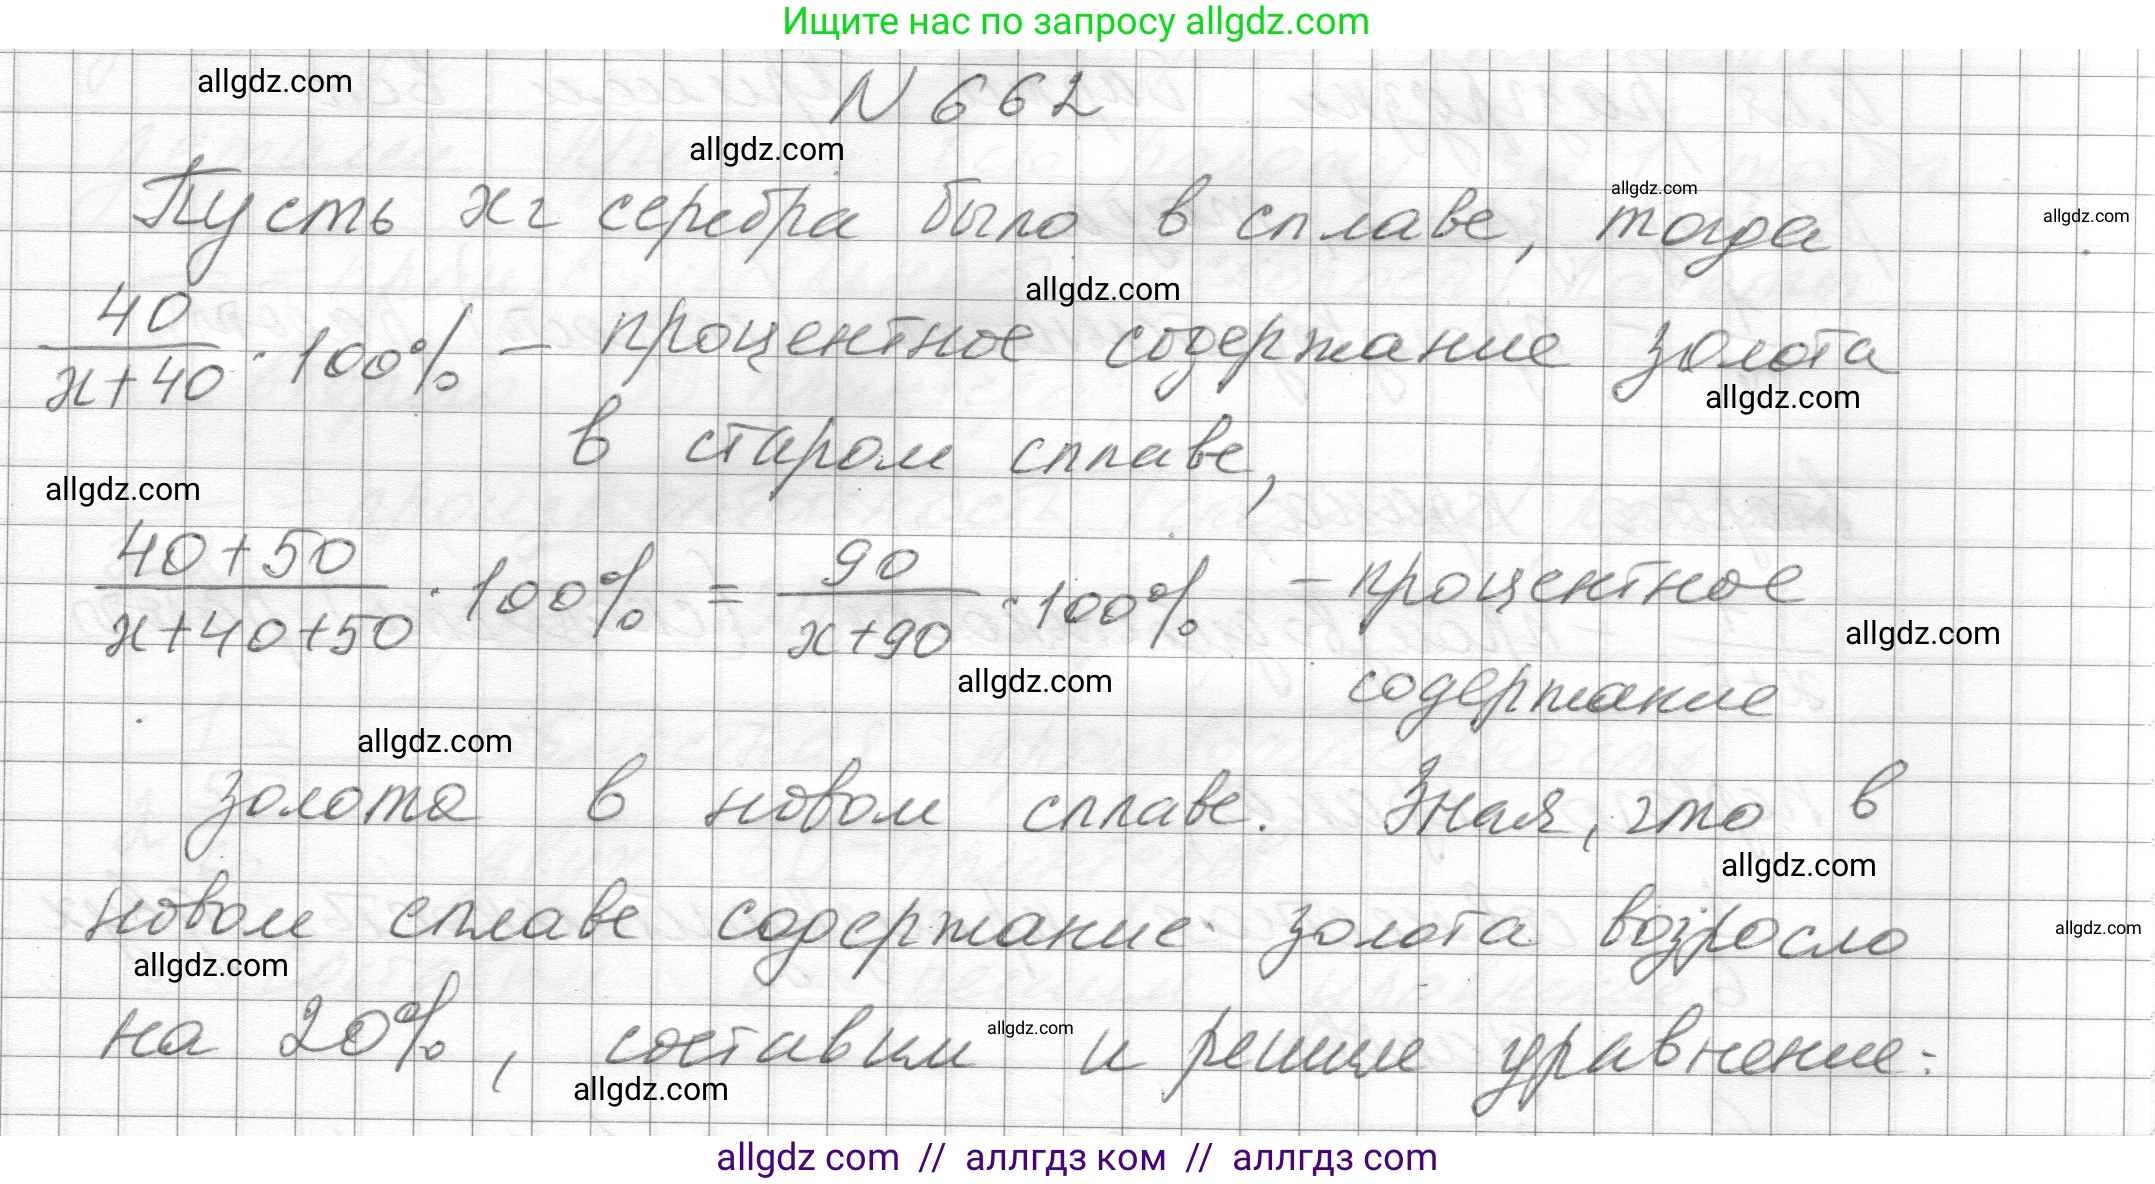 Ищите нас по запросу allgdz.com
allgdz.com
N 662
allgdz.com
allgdz.com
allgdz.com
Пусть x г серебра было в сплаве, тогда
allgdz.com
40/(x+40) · 100% – процентное содержание золота
allgdz.com
в старом сплаве,
allgdz.com
(40+50)/(x+40+50) · 100% = 90/(x+90) · 100% – процентное
allgdz.com
allgdz.com
содержание
allgdz.com
золота в новом сплаве. Зная, что в
allgdz.com
новом сплаве содержание золота возросло
allgdz.com
allgdz.com
на 20%, составим и решим уравнение:
allgdz.com
allgdz.com
allgdz com // аллгдз ком // аллгдз com